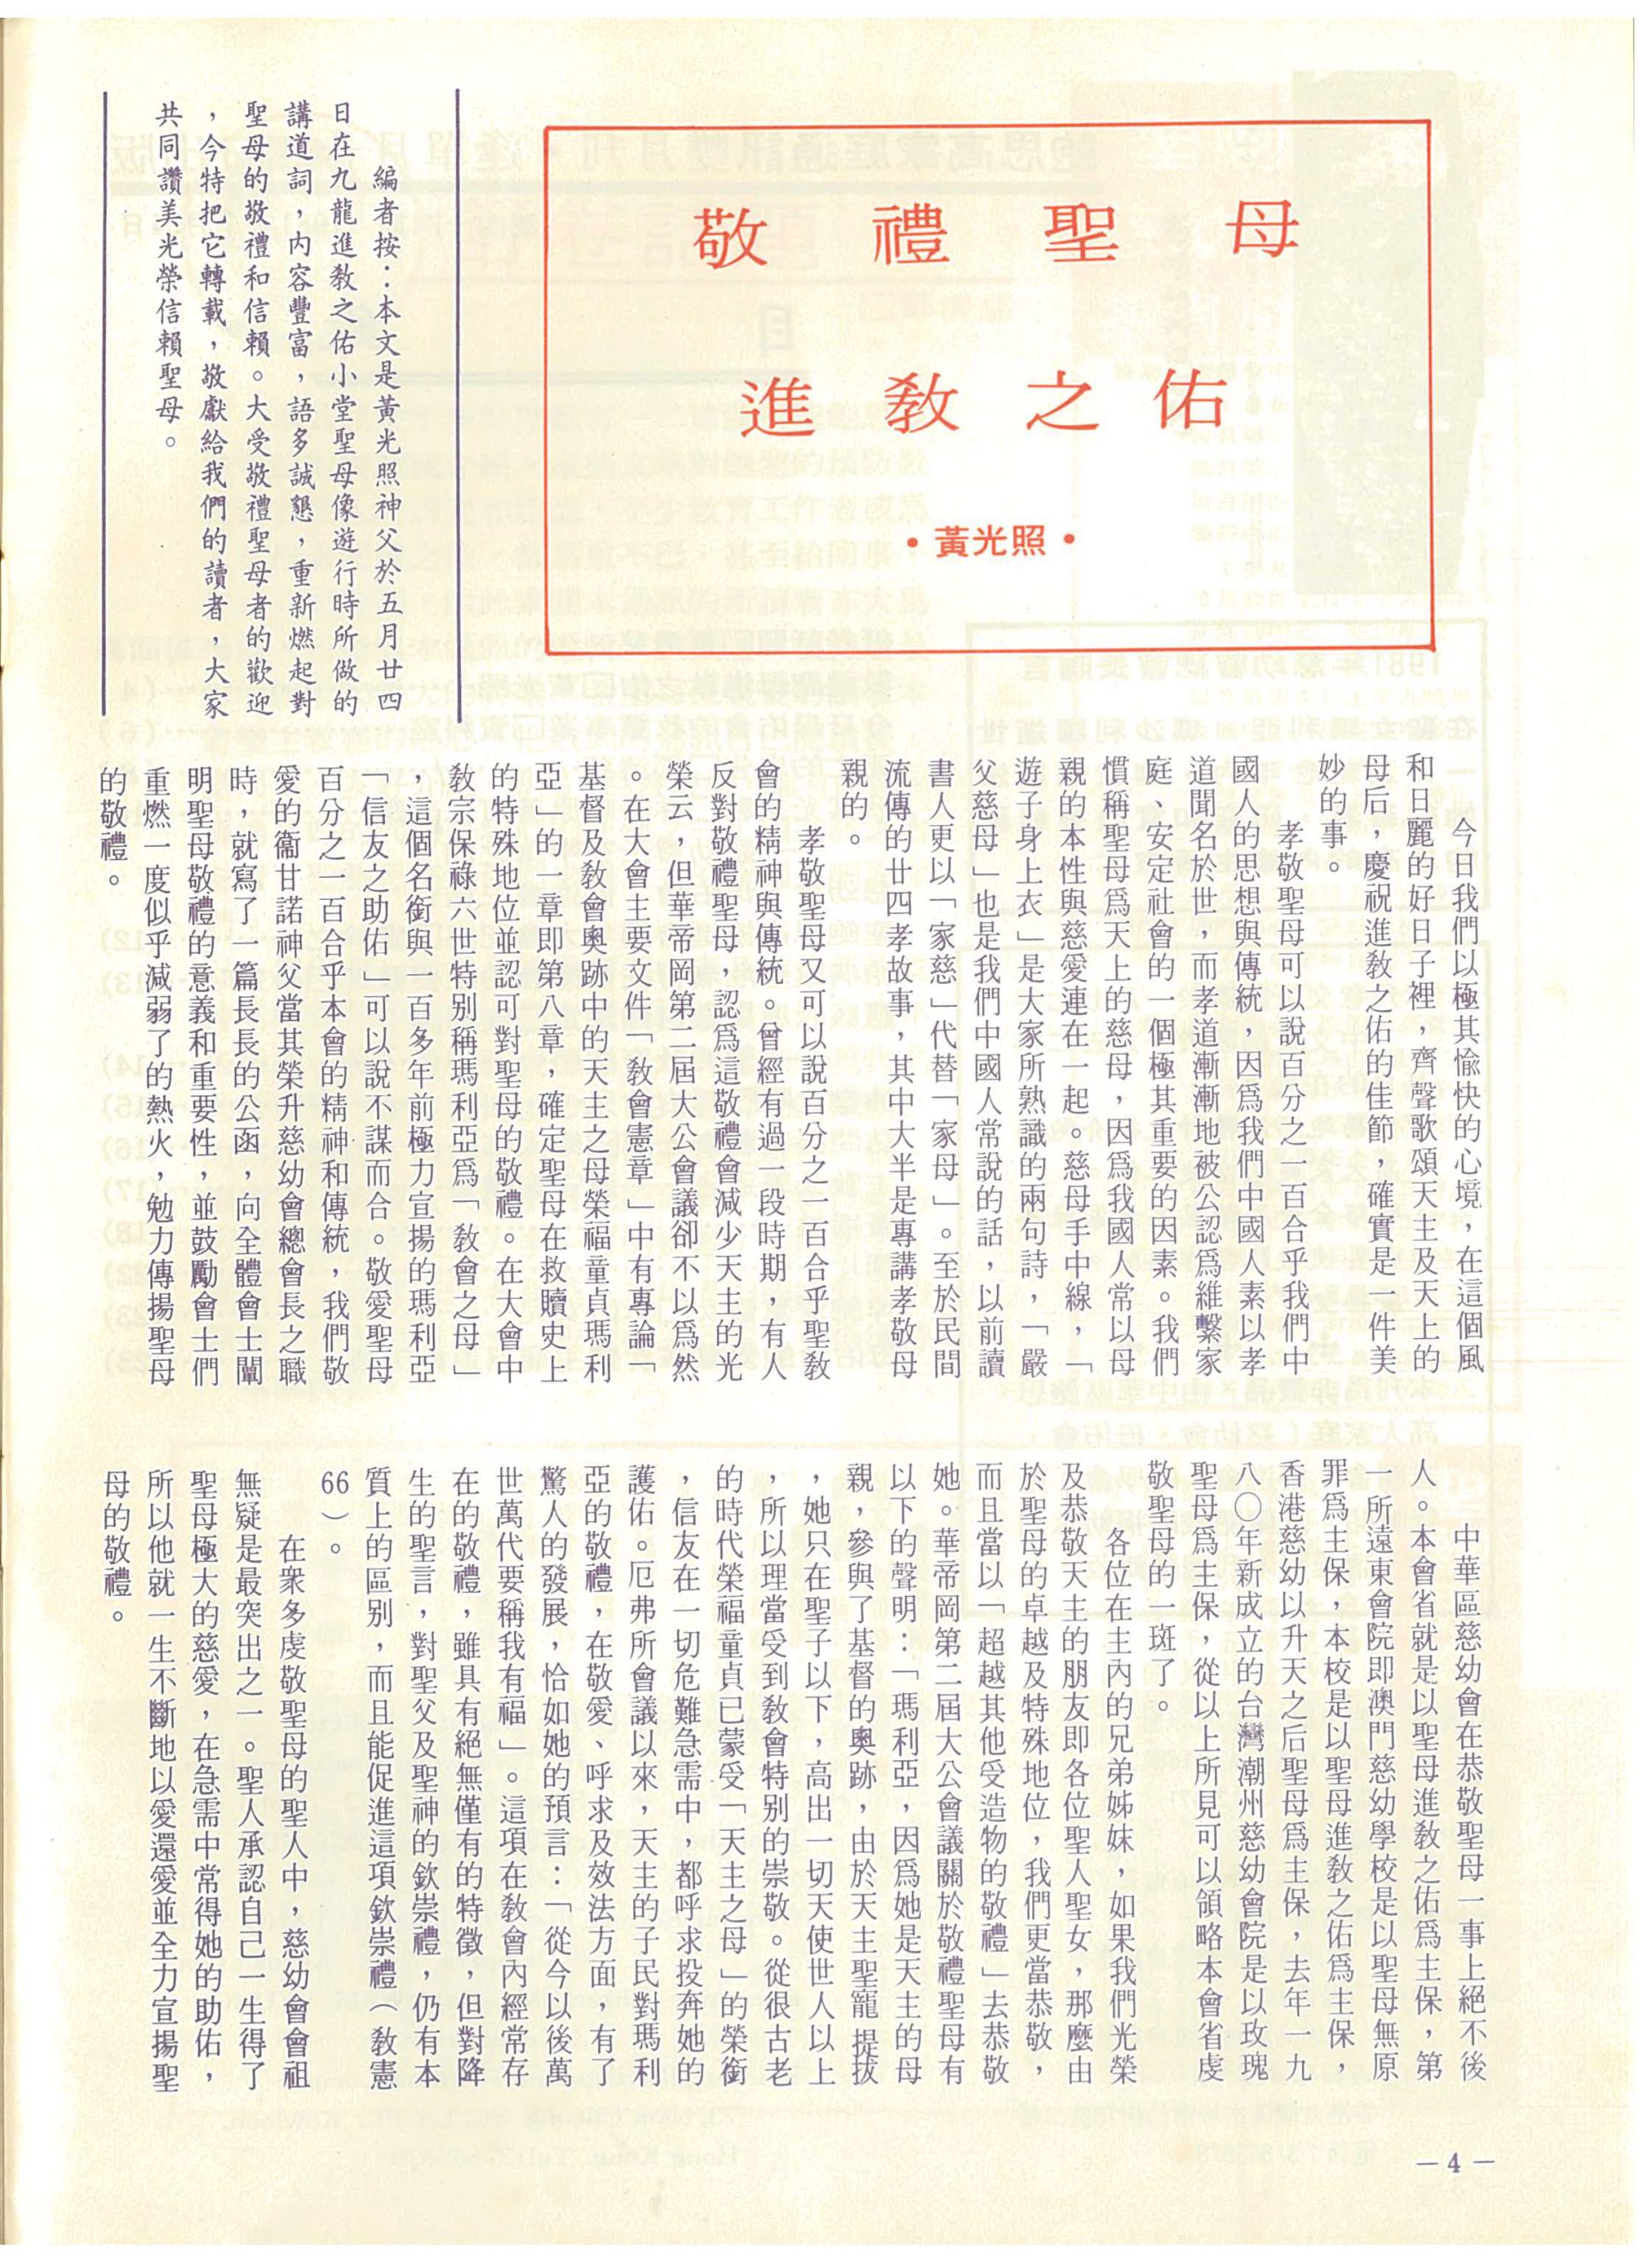 敬禮聖母
進敎之佑
•黃光照•
編者按：本文是黃光照神父於五月廿四
日在九龍進敎之佑小堂聖母像遊行時所做的
講道詞，內容豐富，語多誠懇，重新燃起對
聖母的敬禮和信賴。大受敬禮聖母者的歡迎
，今特把它轉載，敬獻給我們的讀者，大家
共同讚美光榮信賴聖母。
今日我們以極其愉快的心境，在這個風
和日麗的好日子裡，齊聲歌頌天主及天上的
母后，慶祝進敎之佑的佳節，確實是一件美
妙的事。
孝敬聖母可以說百分之一百合乎我們中
國人的思想與傳統，因爲我們中國人素以孝
道聞名於世，而孝道漸漸地被公認爲維繫家
庭、安定社會的一個極其重要的因素。我們
慣稱聖母爲天上的慈母，因爲我國人常以母
親的本性與慈愛連在一起。慈母手中線，「
遊子身上衣」是大家所熟識的兩句詩，「嚴
父慈母」也是我們中國人常說的話，以前讀
書人更以「家慈」代替「家母」。至於民間
流傳的廿四孝故事，其中大半是專講孝敬母
親的。
孝敬聖母又可以說百分之一百合乎聖敎
會的精神與傳統。曾經有過一段時期，有人
反對敬禮聖母，認爲這敬禮會減少天主的光
榮云，但華帝岡第二屆大公會議卻不以爲然
。在大會主要文件「敎會憲章」中有專論「
基督及敎會奧跡中的天主之母榮福童貞瑪利
亞」的一章即第八章，確定聖母在救贖史上
的特殊地位並認可對聖母的敬禮。在大會中
敎宗保祿六世特别稱瑪利亞爲「敎會之母」
，這個名銜與一百多年前極力宣揚的瑪利亞
「信友之助佑」可以說不謀而合。敬愛聖母
百分之一百合乎本會的精神和傳統，我們敬
愛的衞甘諾神父當其榮升慈幼會總會長之職
時，就寫了一篇長長的公函，向全體會士闡
明聖母敬禮的意義和重要性，並鼓勵會士們
重燃一度似乎減弱了的熱火，勉力傳揚聖母
的敬禮。
中華區慈幼會在恭敬聖母一事上絕不後
人。本會省就是以聖母進敎之佑爲主保，第
一所遠東會院即澳門慈幼學校是以聖母無原
罪爲主保，本校是以聖母進敎之佑爲主保，
香港慈幼以升天之后聖母爲主保，去年一九
八〇年新成立的台灣潮州慈幼會院是以玫瑰
聖母爲主保，從以上所見可以領略本會省虔
敬聖母的一斑了。
各位在主內的兄弟姊妹，如果我們光榮
及恭敬天主的朋友即各位聖人聖女，那麼由
於聖母的卓越及特殊地位，我們更當恭敬，
而且當以「超越其他受造物的敬禮」去恭敬
她。華帝岡第二屆大公會議關於敬禮聖母有
以下的聲明：「瑪利亞，因爲她是天主的母
親，參與了基督的奧跡，由於天主聖寵提拔
，她只在聖子以下，高出一切天使世人以上
，所以理當受到敎會特别的崇敬。從很古老
的時代榮福童貞已蒙受「天主之母」的榮銜
，信友在一切危難急需中，都呼求投奔她的
護佑。厄弗所會議以來，天主的子民對瑪利
亞的敬禮，在敬愛、呼求及效法方面，有了
驚人的發展，恰如她的預言：「從今以後萬
世萬代要稱我有福」。這項在敎會內經常存
在的敬禮，雖具有絕無僅有的特徵，但對降
生的聖言，對聖父及聖神的欽崇禮，仍有本
質上的區别，而且能促進這項欽崇禮（敎憲
66）。
在衆多虔敬聖母的聖人中，慈幼會會祖
無疑是最突出之一。聖人承認自己一生得了
聖母極大的慈愛，在急需中常得她的助佑，
所以他就一生不斷地以愛還愛並全力宣揚聖
母的敬禮。
—4—